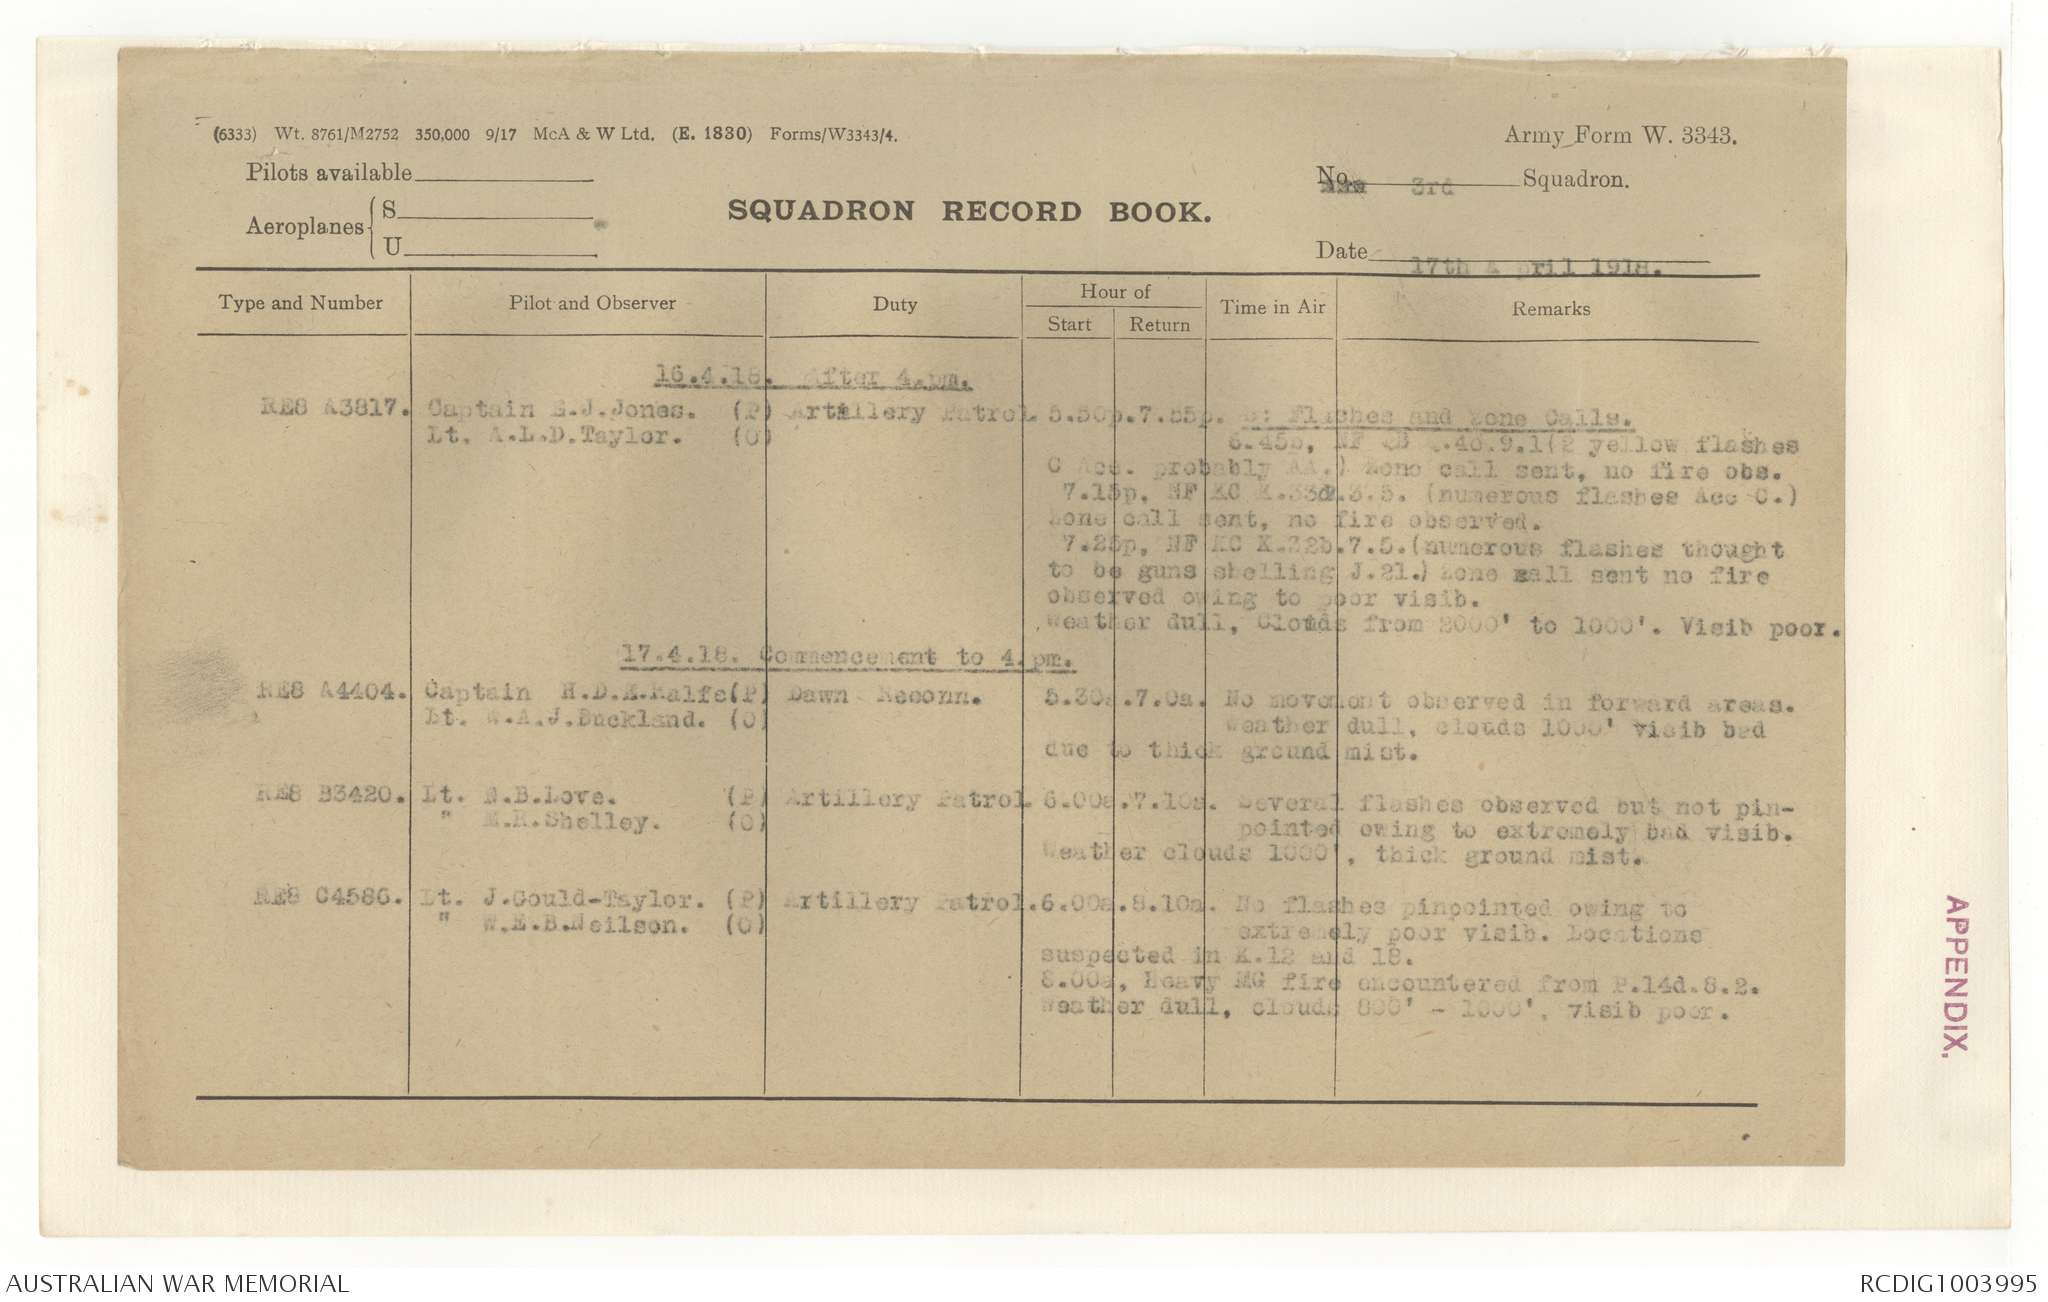 (6333) Wt. 8761/M2752 350,000 9/17 McA & W Ltd. (E. 1830) Forms/W3343/4.
Army Form W. 3343.
Pilots available
No. 3rd Squadron.
SQUADRON RECORD BOOK.
Aeroplanes { S
U
Date 17th April 1918.
Type and Number
Pilot and Observer
Duty
Hour of
Start
Return
Time in Air
Remarks
16.4.18. After 4.pm.
RE8 A3817. Captain E.J.Jones. (P) Artillery Patrol. 5.50p.7.55p. Flashes and Zone Calls.
Lt. A.L.D.Taylor. (O) 6.45p, NF .9.1(2 yellow flashes
C Acc. probably AA.) Zone call sent, no fire obs.
7.15p, NF KC K.33d.3.5. (numerous flashes Acc C.)
Zone call sent, no fire observed.
7.25p, NF KC X.32b.7.5.(numerous flashes thought
to be guns shelling J.21.) Zone call sent no fire
observed owing to poor visib.
Weather dull, Clouds from 2000' to 1000'. Visib poor.
17.4.18. Commencement to 4.pm.
RE8 A4404. Captain H.D.E.Ralfe(P) Dawn Reconn. 5.30a.7.0a. No movement observed in forward areas.
Lt. W.A.J.Buckland. (O) Weather dull, clouds 1000' visib bad
due to thick ground mist.
RE8 B3420. Lt. N.B.Love. (P) Artillery Patrol. 6.00a.7.10a. Several flashes observed but not pin-
" M.R.Shelley. (O) pointed owing to extremely bad visib.
Weather clouds 1000', thick ground mist.
RE8 C4586. Lt. J.Gould-Taylor. (P) Artillery Patrol. 6.00a.8.10a. No flashes pinpointed owing to
" W.E.B.Neilson. (O) extremely poor visib. Locations
suspected in K.12 and 18.
8.00a, Heavy MG fire encountered from P.14d.8.2.
Weather dull, clouds 800' - 1000', visib poor.
APPENDIX.
AUSTRALIAN WAR MEMORIAL
RCDIG1003995